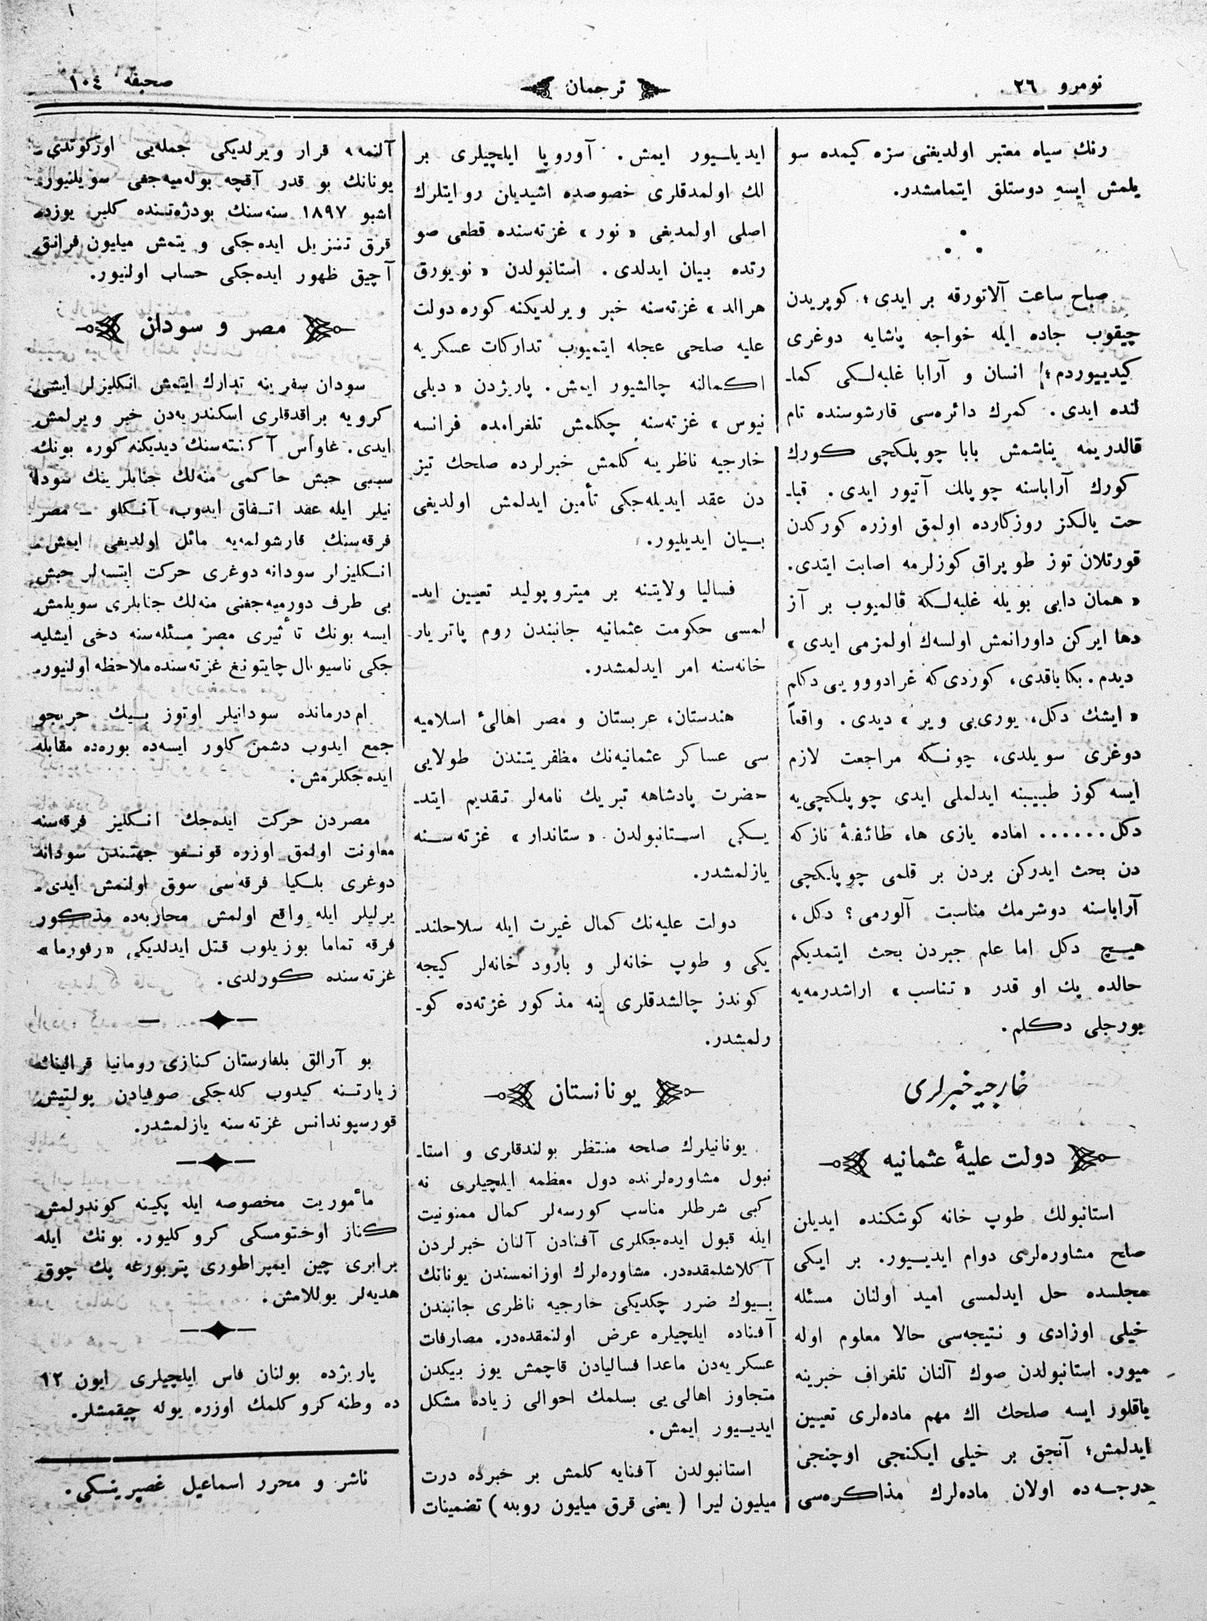 نومرو ٢٦
ترجمان
صحیفه ١٠٤
رنك سیاه معتبر اولدیغنی سزه کیمده سو
یلمش ایسه دوستلق ایتمامشدر.
صباح ساعت آلاتورقه بر ایدی؛ کوپریدن
چیقوب جاده ایله خواجه پاشایه دوغری
کیدییوردم؛ انسان و آرابا غلبه‌لـکی کمالـ
لنده ایدی. کمرك دائره‌سی قارشوسنده تام
قالدریمه یناشمش بابا چوپلکچی کورك
کورك آراباسنه چوپلك آتیور ایدی. قبا‌
حت یالکز روزکارده اولمق اوزره کورکدن
قورتلان توز طوپراق کوزلرمه اصابت ایتدی.
« همان دایی بویله غلبه‌لـکه قالمیوب بر آز
دها ایرکن داورانمش اولسه‌ك اولمزمی ایدی »
دیدم. بکا باقدی، کوزدی‌که غرادووویی دکلم
« ایشك دکل، یوری‌یی ویر » دیدی. واقعاً
دوغری سویلدی، چونـکه مراجعت لازم
ایسه کوز طبیبنه ایدلملی ایدی چوپلکچی‌یه
دکل...... اماده یازی ها، طائفهٔ نازکه
دن بحث ایدرکن بردن بر قلمی چوپلکچی
آراباسنه دوشرمك مناسبت آلورمی؟ دکل،
هیـچ دکل اما علم جبردن بحث ایتمدیکم
حالده پك او قدر « تناسب » اراشدرمه‌یه
بورجلی دکلم.
خارجیه خبرلری
دولت علیهٔ عثمانیه
استانبولك طوپ خانه کوشکنده ایدیلن
صلح مشاوره‌لری دوام ایدیـیور. بر ایکی
مجلسده حل ایدلمسی امید اولنان مسئله
خیلی اوزادی و نتیجه‌سی حالا معلوم اوله
میور. استانبولدن صوك آلنان تلغراف خبرینه
یاقلور ایسه صلحك اك مهم ماده‌لری تعیین
ایدلمش؛ آنجق بر خیلی ایکنجی اوچنجی
درجـه‌ده اولان ماده‌لرك مذاکره‌سی
ایدیلـیور ایمش. آوروپا ایلچیلری بر
لك اولمدقلری خصوصده اشیدیان روایتلرك
اصلی اولمدیغی « نور » غزته‌سنده قطعی صو
رتده بیان ایدلدی. استانبولدن « نویورق
هرالد » غزته‌سنه خبر ویرلدیکنه کوره دولت
علیه صلحی عجله ایتمیوب تدارکات عسکریه
اکمالنه چالشیور ایمش. پاریژدن « دیلی
نیوس » غزته‌سنه چکلمش تلغرامده فرانسه
خارجیه ناظرینه کلمش خبرلرده صلحك تیز
دن عقد ایدیله‌جکی تأمین ایدلمش اولدیغی
بـیان ایدیلیور.
فسالیا ولایتنه بر میتروپولید تعیین ایدـ
لمسی حکومت عثمانیه جانبندن روم پاتریار
خانه‌سنه امر ایدلمشدر.
هندستان، عربستان و مصر اهالیٔ اسلامیه
سی عساکر عثمانیه‌نك مظفریتندن طولایی
حضرت پادشاهه تبریك نامه‌لر تقدیم ایتدـ
یـکی اسـتانبولدن « ستاندار » غزته‌سـنه
یازلمشدر.
دولت علیه‌نك کمال غیرت ایله سلاحلندـ
یکی و طوپ خانه‌لر و بارود خانه‌لر کیجه
کوندز چالشدقلری ینه مذکور غزته‌ده کو‌ـ
رلمشدر.
یونانستان
یونانیلرك صلحه منتظر بولندقلری و استاـ
نبول مشاوره‌لرنده دول معظمه ایلچیلری نه
کبی شرطلر مناسب کورسه‌لر کمال ممنونیت
ایله قبول ایده‌جکلری آفنادن آلنان خبرلردن
آکلاشلمقده‌در. مشاوره‌لرك اوزانمسندن یونانك
بـیوك ضرر چکدیکی خارجیه ناظری جانبندن
آفناده ایلچیلره عرض اولنمقده‌در. مصارفات
عسکریه‌دن ماعدا فسالیادن قاچمش یوز بیکدن
متجاوز اهالی‌یی بسلمك احوالی زیاده مشکل
ایدیـیور ایمش.
استانبولدن آفنایه کلمش بر خبرده درت
میلیون لیرا ( یعنی قرق میلیون روبله ) تضمینات
آلنمه قرار ویرلدیکی جمله‌یی اورکوتدی.
یونانك بو قدر آقچه بوله‌میه‌جغی سویلنیور.
اشبو ١٨٩٧ سنه‌سنك بودژه‌تنده کلیر یوزده
قرق تنزیل ایده‌جکی و یتمش میلیون فرانق
آچیق ظهور ایده‌جکی حساب اولنیور.
مصر و سودان
سودان سفرینه تدارك ایتمش انکلیزلر ایشی
کرویه براقدقلری اسکندریه‌دن خبر ویرلمش
ایدی. غاواس آکنته‌سنك دیدیکنه کوره بونك
سببی حبش حاکمی منه‌لك جنابلرینك سودا
نیلر ایله عقد اتـفاق ایدوب، آنـکلو ـ مصر
فرقه‌سنك قارشولمه‌یه مائل اولدیغی ایمش.
انـکلیزلر سودانه دوغری حرکت ایتسه‌لر حبش
بی طرف دورمیه‌جغنی منه‌لك جنابلری سویلمش
ایسه بونك تأثیری مصر مسئله‌سنه دخی ایشلیه
جکی ناسیونال چایتونغ غزته‌سنده ملاحظه اولنیور.
ام‌درمانده سودانیلر اوتوز بـیك حربجو
جمع ایدوب دشمن کلور ایسه‌ده بوره‌ده مقابله
ایده‌جکلرمش.
مصردن حرکت ایده‌جك انـکلیز فرقه‌سنه
معاونت اولمق اوزره قونـغو جهتندن سودانه
دوغری بلـکیا فرقه‌سی سوق اولنمش ایدی.
یرلیلر ایله واقع اولمش محاربه‌ده مذکور
فرقه تماما بوزیلوب قتل ایدلدیکی « رفورما »
غزته‌سنده کورلدی.
بو آرالق بلغارستان کنازی رومانیا قرالینك
زیارتـنه کیدوب کله‌جکی صوفیادن پولتیش
قورسپوندانس غزته‌سنه یازلمشدر.
مأموریت مخصوصه ایله پکینه کوندرلمش
کناز اوختومسکی کرو کلیور. بونك ایله
برابری چین ایمپراطوری پتربورغه پك چوق
هدیه‌لر یوللامش.
پاریژده بولنان فاس ایلچیلری ایون ١٢
ده وطنه کرو کلمك اوزره یوله چیقمشلر.
ناشر و محرر اسماعیل غصپرینسکی.